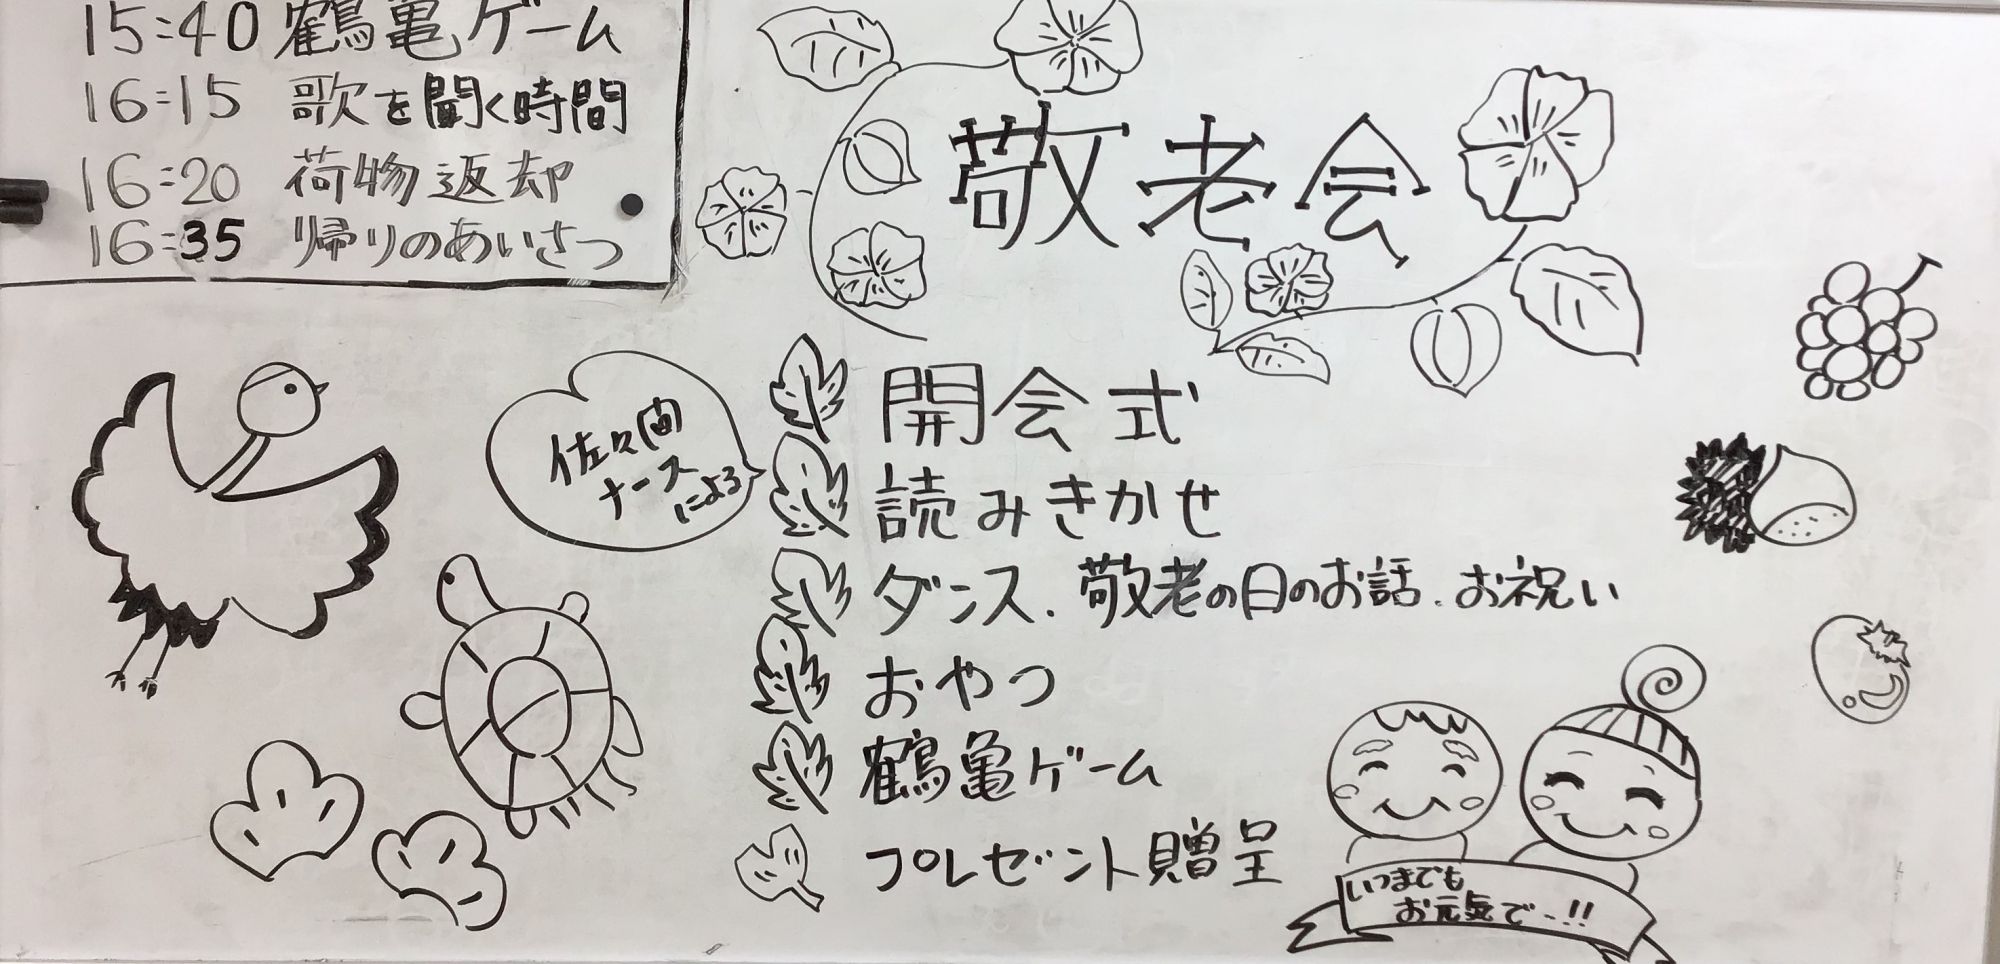 15:40 鶴亀ゲーム
16:15 歌を聞く時間
16:20 荷物返却
16:35 帰りのあいさつ
敬老会
開会式
佐々
ナース
による
読みきかせ
ダンス.敬老の日のお話.お祝い
おやつ
鶴亀ゲーム
プレゼント贈呈
いつまでも
お元気で-!!